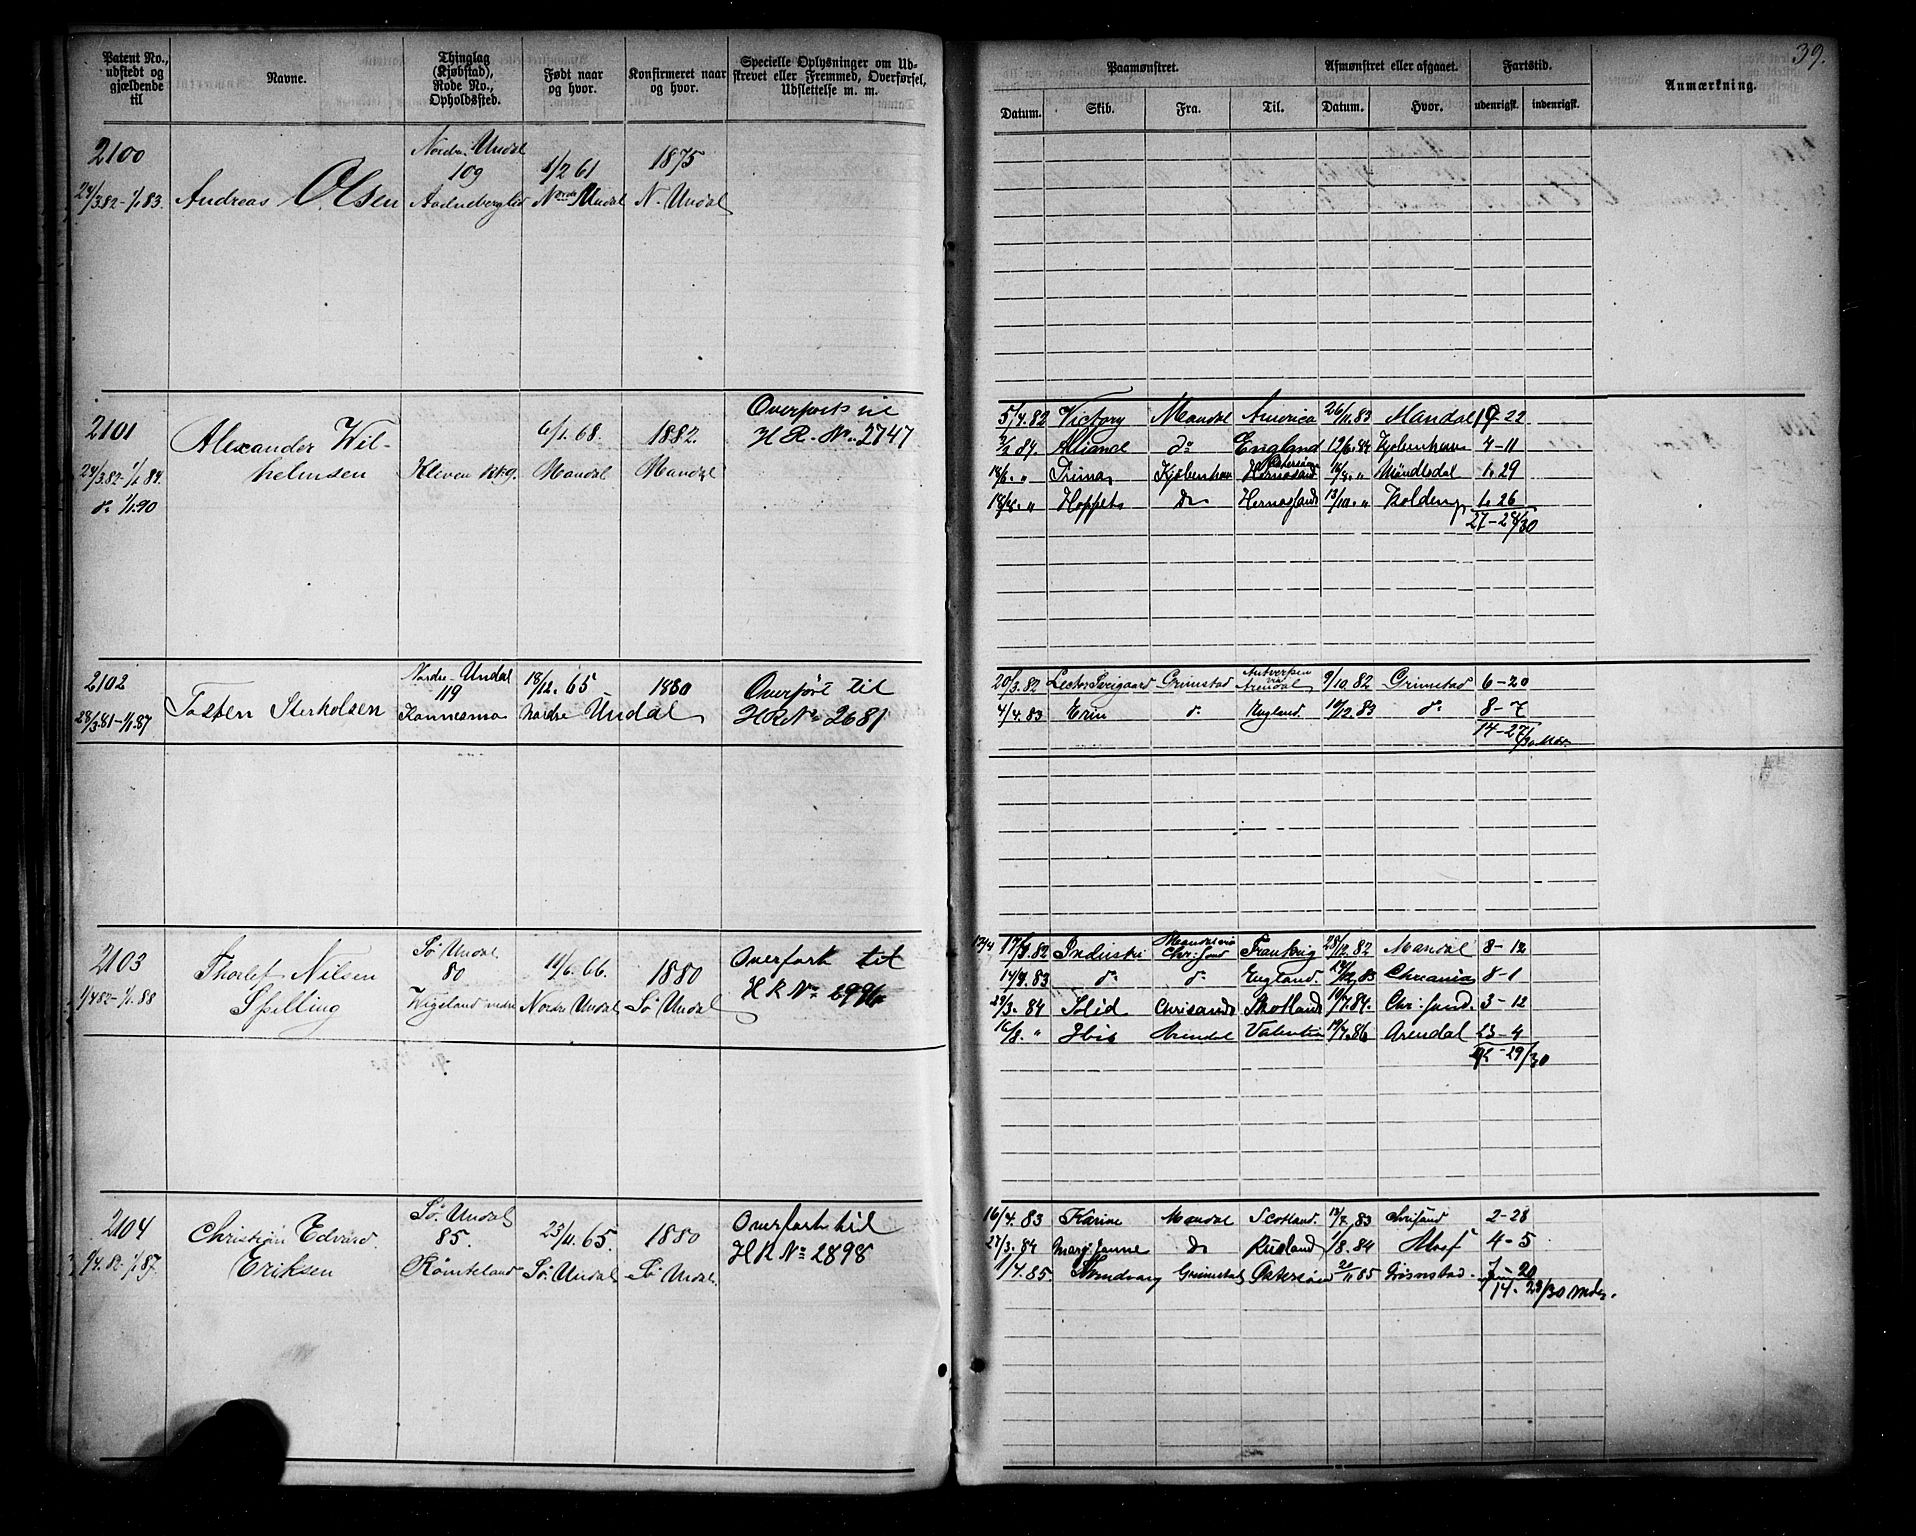 39.
Patent No., udstedt og gjældende til | Navne. | Thinglag (Kjøbstad), Rode No., Opholdssted. | Født naar og hvor. | Konfirmeret naar og hvor. | Specielle Oplysninger om Udskrevet eller Fremmed, Overførsel, Udslettelse m. m.
Paamønstret. | Afmønstret eller afgaaet. | Fartstid. | Anmærkning.
Datum. | Skib. | Fra. | Til. | Datum. | Hvor. | udenrigsk. | indenrigsk.
2100 | Nordre Undal
109 | 1/2 61 | 1875
24/3.82-1/1.83. | Andreas Olsen | Ndre Undal | N. Undal
2101 | Alexander Wil- | 6/1.68. | 1882. | Overført til
H R. No. 2747
24/3.82-1/1.84. | helmsen | Kleven | Mandal | Mandal
do 1/1.90
5/4.82 | Victory | Mandal | America | 26/11.83 | Mandal | 19-22
2/2 84. | Alliance | do | England | 12/6.84 | Kjøbenhavn | 4-11
18/6. " | Prima | Kjøbenhavn | Hernøsand | 18/8. " | 1.29
18/8. " | Hoppets | do | Hernøsand | 13/10. " | Kolding | 1.26
27-28/30
2102 | Nordre-Undal
119 | 18/12.65 | 1880 | Overført til
28/3.81-1/1.87 | Tosten Sterkolsen | Nordre Undal | H R No 2681
20/3.82 | Grimstad | Antwerpen via Arendal | 9/10.82 | Grimstad | 6-20
4/4.83 | Erin | do | England. | 10/12.83 | do | 8-7
14-27/30 Mdr.
2103 | Thorlef Nilsen | Sø. Undal
80 | 11/6.66. | 1880 | Overført til
H R No 2996
1/4 82-1/1.88 | Spilling | Wigeland nedre | Nordre Undal | Sø Undal
13/4 17/3.82 | Industri | Mandal via Chr.sand | Frankrig | 28/12.82 | Mandal | 8-12
14/4.83 | do | do | England. | Chr.ania | 8-1
29/3.84 | Solid | Chr.sand | Skotland | 10/7.84. | Chr.sand. | 3-12
16/8. " | Ibis | Arendal | Valentia | 19/7.86 | Arendal | 23-4
42-29/30
2104 | Christian Edvard | Sø. Undal
85. | 23/11.65. | 1880 | Overført til
H R No 2898
9/4.82-1/1.87. | Eriksen | Sø. Undal | Sø Undal.
16/4.83 | Karine | Mandal | Scotland. | 13/7.83 | Chr.sand | 2-28
27/3.84 | do | Rusland | 1/8.84 | 4-5
1/4.85. | Strandvarg | Grimstad | Østersøen | 20/11.85 | Grimstad. | 7-20
14. 23/30 Mdr.